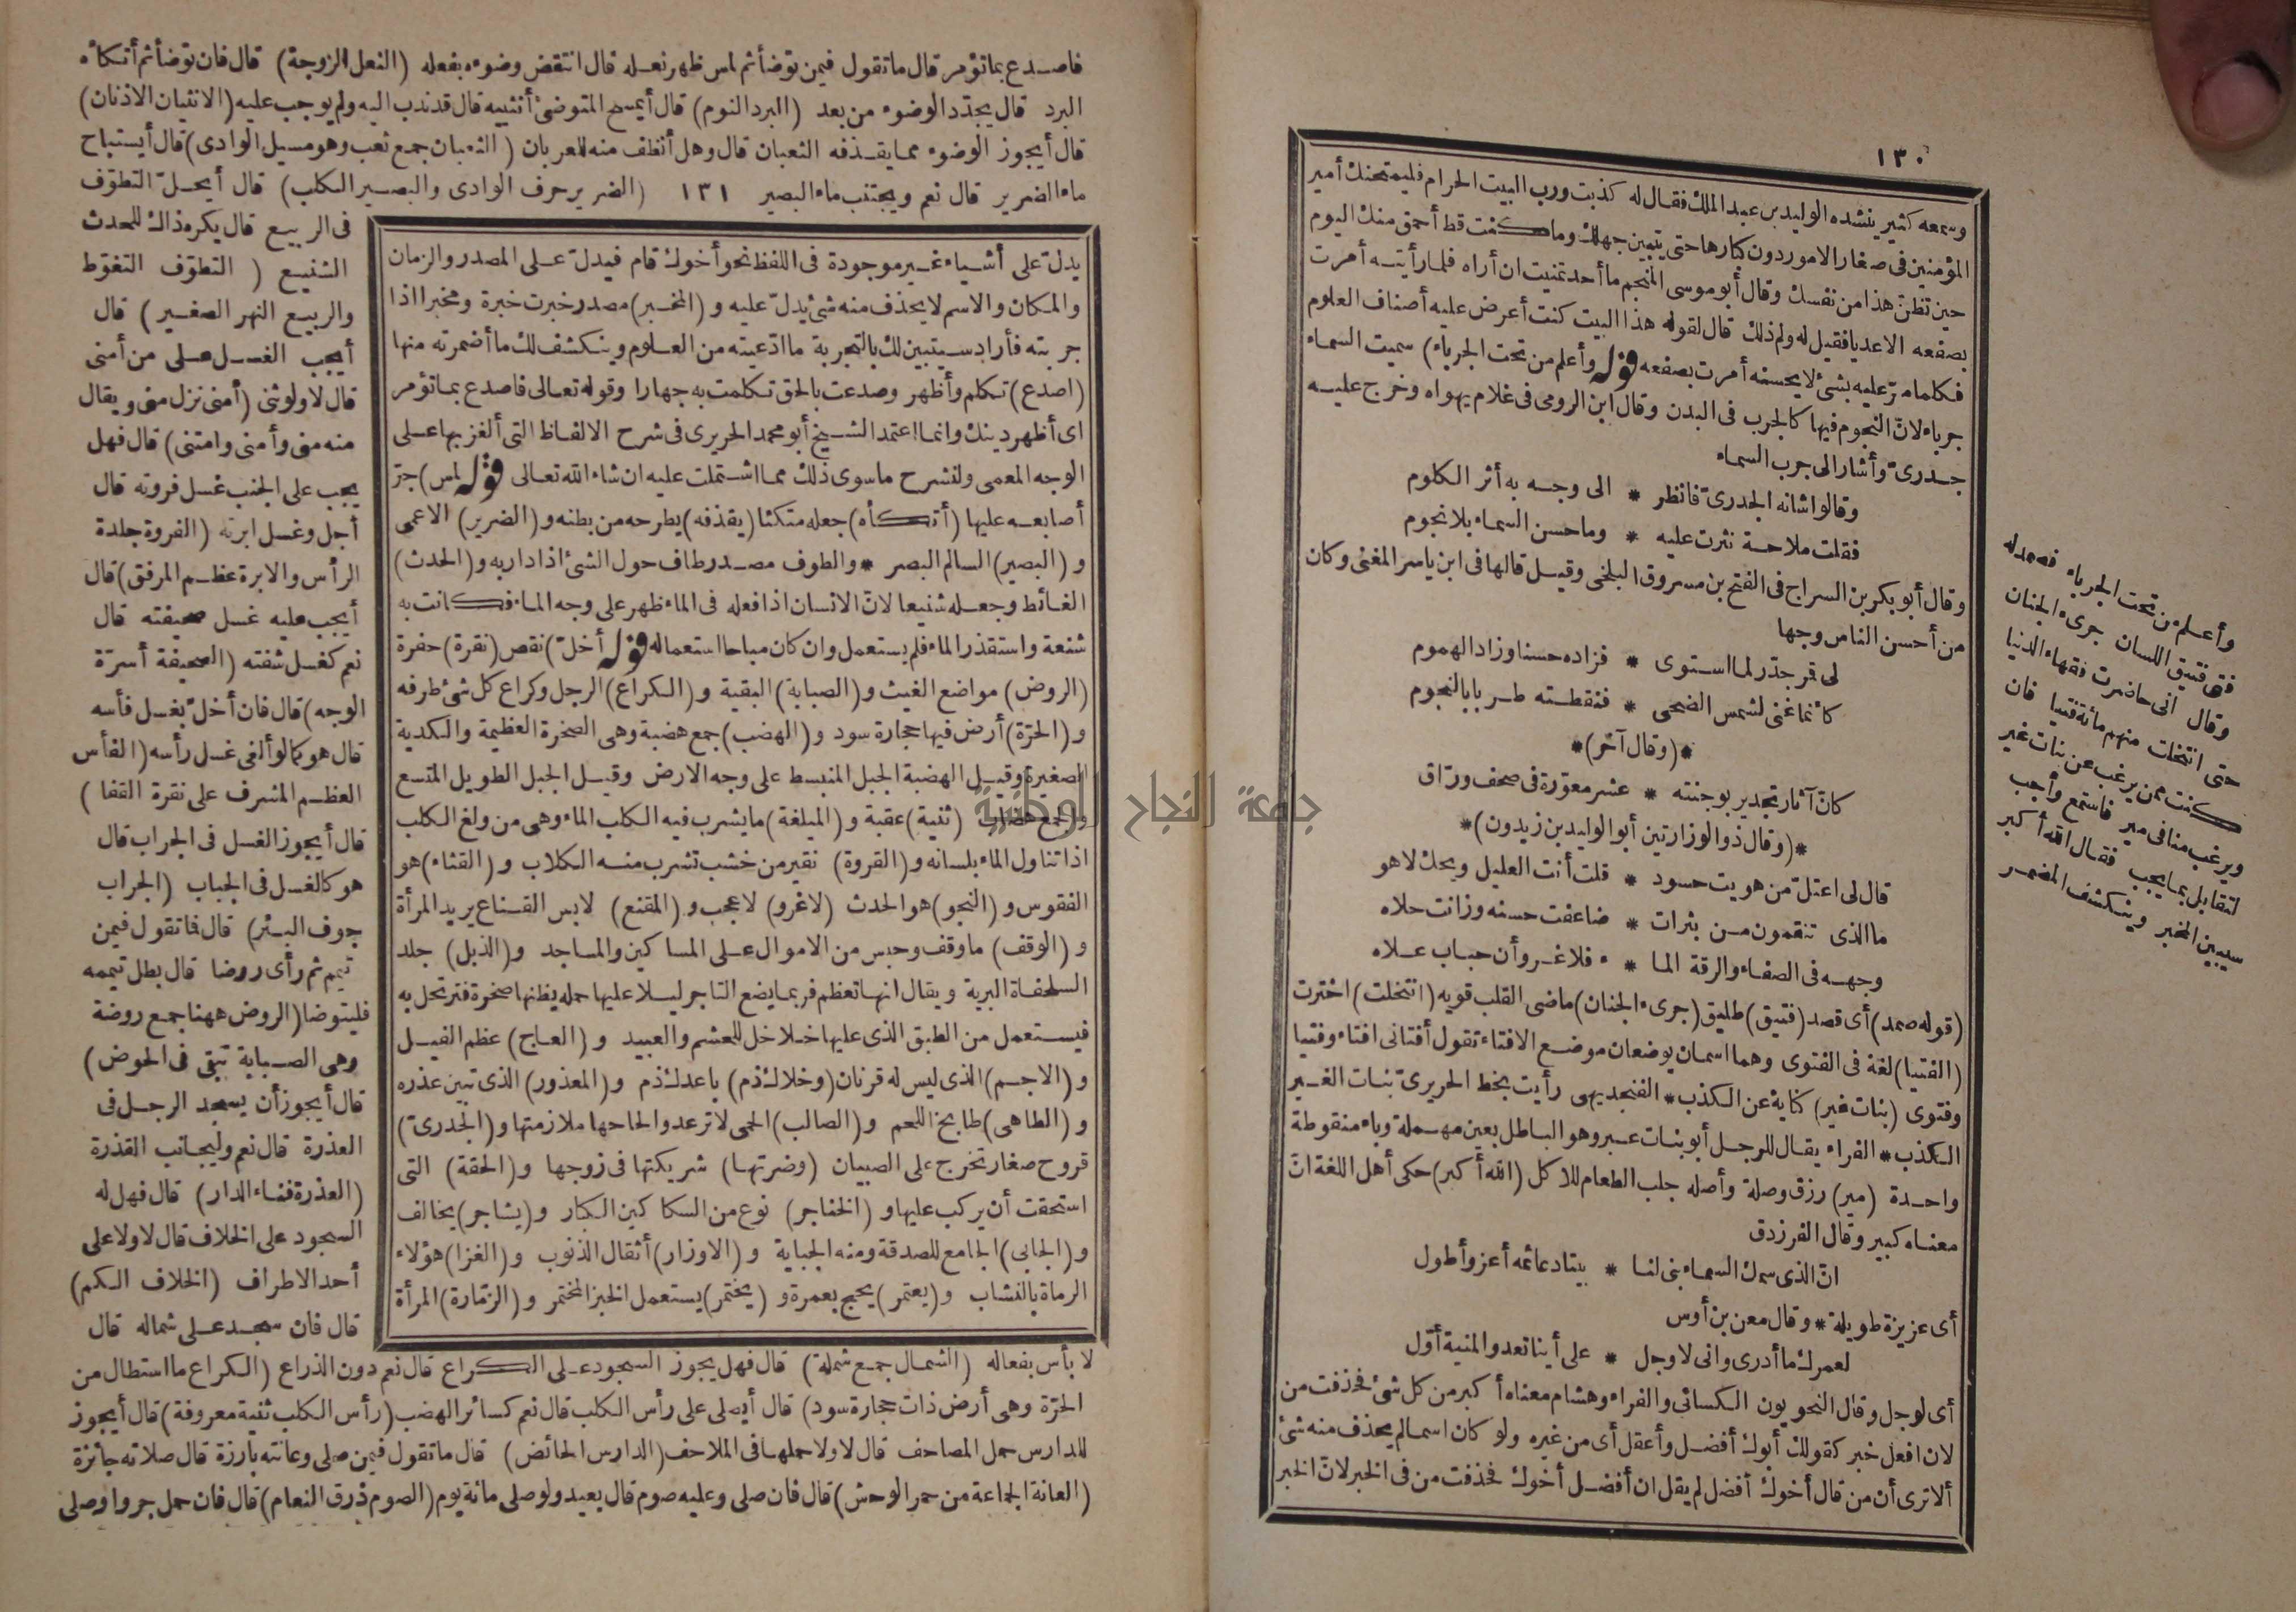 ١٣٠
وسمعه كثير ينشده الوليد بن عبد الملك فقال له كذبت ورب البيت الحرام فليمتحنك أمير
المؤمنين في صغار الامور دون كبارها حتى يتبين جهلك وما كنت قط أحمق منك اليوم
حين تظن هذا من نفسك وقال أبو موسى المنجم ما أحد تمنيت ان أراه فلما رأيته أمرت
بصفعه الا عديا فقيل له ولم ذلك قال لقوله هذا البيت كنت أعرض عليه أصناف العلوم
فكلما مرّ عليه بشئ لا يحسنه أمرت بصفعه قوله وأعلم من تحت الجرباء) سميت السماء
جرباء لانّ النجوم فيها كالجرب في البدن وقال ابن الرومى في غلام يهواه وخرج عليه
جدرىّ وأشار الى جرب السماء
وقالوا شانه الجدرىّ فانظر * الى وجه به أثر الكلوم
فقلت ملاحة نثرت عليه * وما حسن السماء بلا نجوم
وقال أبو بكر بن السراج في الفتح بن مسروق البلخى وقيل قالها في ابن ياسر المغنى وكان
من أحسن الناس وجها
لى قمر جدّر لما استوى * فزاده حسنا وزاد الهموم
كأنما غنى لشمس الضحى * فنقطته طربا بالنجوم
*(وقال آخر)*
كانّ آثار تجدير بوجنته * عشر معوّرة في صحف ورّاق
*(وقال ذو الوزارتين أبو الوليد بن زيدون)*
قال لى اعتلّ من هويت حسود * قلت أنت العليل ويحك لا هو
ما الذى تنقمون من بثرات * ضاعفت حسنه وزانت حلاه
وجهه في الصفاء والرقة الما * ء فلا غرو أن حباب علاه
(قوله صمد) أى قصد (فتيق) طليق (جرىء الجنان) ماضى القلب قويه (انتخلت) اخترت
(الفتيا) لغة في الفتوى وهما اسمان يوضعان موضع الافتاء تقول أفتانى افتاء وفتيا
وفتوى (بنات غير) كناية عن الكذب * الفنجديهى رأيت بخط الحريرىّ بنات الغير
الكذب * الفراء يقال للرجل أبو بنات عبر وهو الباطل بعين مهملة وباء منقوطة
واحدة (مير) رزق وصلة وأصله جلب الطعام للاكل (الله أكبر) حكى أهل اللغة انّ
معناه كبير وقال الفرزدق
انّ الذى سمك السماء بنى لنا * بيتا دعائمه أعز وأطول
أى عزيزة طويلة * وقال معن بن أوس
لعمرك ما أدرى وانى لاوجل * على أينا تعدو المنية أوّل
أى لوجل وقال النحويون الكسائى والفراء وهشام معناه أكبر من كل شئ فحذفت من
لان افعل خبر كقولك أبوك أفضل وأعقل أى من غيره ولو كان اسما لم يحذف منه شئ
ألا ترى أن من قال أخوك أفضل لم يقل ان أفضل أخوك فحذفت من في الخبر لانّ الخبر
وأعلم من تحت الجرباء فصمد له
فتى فتيق اللسان جرىء الجنان
وقال انى حاضرت فقهاء الدنيا
حتى انتخلت منهم مائة فتيا فان
كنت ممن يرغب عن بنات غير
ويرغب منا في مير فاستمع وأجب
لتقابل بما يجب فقال الله أكبر
سيبين المخبر وينكشف المضمر
فاصدع بما تؤمر قال ما تقول فيمن توضأ ثم لمس ظهر نعله قال انتقض وضوءه بفعله (النعل الزوجة) قال فان توضأ ثم أتكأه
البرد قال يجدّد الوضوء من بعد (البرد النوم) قال أيمسح المتوضئ أنثييه قال قد ندب اليه ولم يوجب عليه (الانثيان الاذنان)
قال أيجوز الوضوء مما يقذفه الثعبان قال وهل أنظف منه للعربان (الثعبان جمع ثعب وهو مسيل الوادى) قال أيستباح
ماء الضرير قال نعم ويجتنب ماء البصير ١٣١ (الضرير حرف الوادى والبصير الكلب) قال أيحلّ التطوّف
في الربيع قال يكره ذاك للحدث
الشنيع (التطوّف التغوّط
والربيع النهر الصغير) قال
أيجب الغسل على من أمنى
قال لا ولو ثنى (أمنى نزل منى ويقال
منه منى وأمنى وامتنى) قال فهل
يجب على الجنب غسل فروته قال
أجل وغسل ابرته (الفروة جلدة
الرأس والابرة عظم المرفق) قال
أيجب عليه غسل صحيفته قال
نعم كغسل شفته (الصحيفة أسرّة
الوجه) قال فان أخلّ بغسل فأسه
قال هو كما لو ألغى غسل رأسه (الفأس
العظم المشرف على نقرة القفا)
قال أيجوز الغسل في الجراب قال
هو كالغسل في الجباب (الجراب
جوف البئر) قال فما تقول فيمن
تيمم ثم رأى روضا قال بطل تيممه
فليتوضا (الروض ههنا جمع روضة
وهى الصبابة تبقى في الحوض)
قال أيجوز أن يسجد الرجل في
العذرة قال نعم وليجانب القذرة
(العذرة فناء الدار) قال فهل له
السجود على الخلاف قال لا ولا على
أحد الاطراف (الخلاف الكم)
قال فان سجد على شماله قال
يدلّ على أشياء غير موجودة في اللفظ نحو أخوك قام فيدلّ على المصدر والزمان
والمكان والاسم لا يحذف منه شئ يدلّ عليه و (المخبر) مصدر خبرت خبرة ومخبرا اذا
جربته فأراد سيتبين لك بالتجربة ما ادّعيته من العلوم وينكشف لك ما أضمرته منها
(اصدع) تكلم وأظهر وصدعت بالحق تكلمت به جهارا وقوله تعالى فاصدع بما تؤمر
اى أظهر دينك وانما اعتمد الشيخ أبو محمد الحريرى في شرح الالفاظ التى ألغز بها على
الوجه المعمى ولنشرح ما سوى ذلك مما اشتملت عليه ان شاء الله تعالى قوله لمس) جرّ
أصابعه عليها (أتكأه) جعله متكئا (يقذفه) يطرحه من بطنه و (الضرير) الاعمى
و (البصير) السالم البصر * والطوف مصدر طاف حول الشئ اذا دار به و (الحدث)
الغائط وجعله شنيعا لانّ الانسان اذا فعله في الماء ظهر على وجه الماء فكانت به
شنعة واستقذر الماء فلم يستعمل وان كان مباحا استعماله قوله أخلّ) نقص (نقرة) حفرة
(الروض) مواضع الغيث و (الصبابة) البقية و (الكراع) الرجل وكراع كل شئ طرفه
و (الحرّة) أرض فيها حجارة سود و (الهضب) جمع هضبة وهى الصخرة العظيمة والكدية
الصغيرة وقيل الهضبة الجبل المنبسط على وجه الارض وقيل الجبل الطويل المتسع
والجمع هضاب (ثنية) عقبة و (الميلغة) ما يشرب فيه الكلب الماء وهى من ولغ الكلب
اذا تناول الماء بلسانه و (القروة) نقير من خشب تشرب منه الكلاب و (القثاء) هو
الفقوس و (النجو) هو الحدث (لا غرو) لا عجب و (المقنع) لابس القناع يريد المرأة
و (الوقف) ما وقف وحبس من الاموال على المساكين والمساجد و (الذبل) جلد
السلحفاة البرية ويقال انها تعظم فربما يضع التاجر ليلا عليها حمله يظنها صخرة فترتحل به
فيستعمل من الطبق الذى عليها خلاخل للعشم والعبيد و (العاج) عظم الفيل
و (الاجم) الذى ليس له قرنان (وخلاك ذم) باعدك ذم و (المعذور) الذى تبين عذره
و (الطاهى) طابخ اللحم و (الصالب) الحمى لا ترعد والحاحها ملازمتها و (الجدرىّ)
قروح صغار تخرج على الصبيان (وضرتها) شريكتها في زوجها و (الحقة) التى
استحقت أن يركب عليها و (الخناجر) نوع من السكاكين الكبار و (يشاجر) يخالف
و (الجابى) الجامع للصدقة ومنه الجباية و (الاوزار) أثقال الذنوب و (الغزا) هؤلاء
الرماة بالنشاب و (يعتمر) يحج بعمرة و (يختمر) يستعمل الخبز المختمر و (الزمّارة) المرأة
لا بأس بفعاله (الشمال جمع شملة) قال فهل يجوز السجود على الكراع قال نعم دون الذراع (الكراع ما استطال من
الحرّة وهى أرض ذات حجارة سود) قال أيصلى على رأس الكلب قال نعم كسائر الهضب (رأس الكلب ثنية معروفة) قال أيجوز
للدارس حمل المصاحف قال لا ولا حملها في الملاحف (الدارس الحائض) قال ما تقول فيمن صلى وعانته بارزة قال صلاته جائزة
(العانة الجماعة من حمر الوحش) قال فان صلى وعليه صوم قال يعيد ولو صلى مائة يوم (الصوم ذرق النعام) قال فان حمل جروا وصلى
جامعة النجاح الوطنية